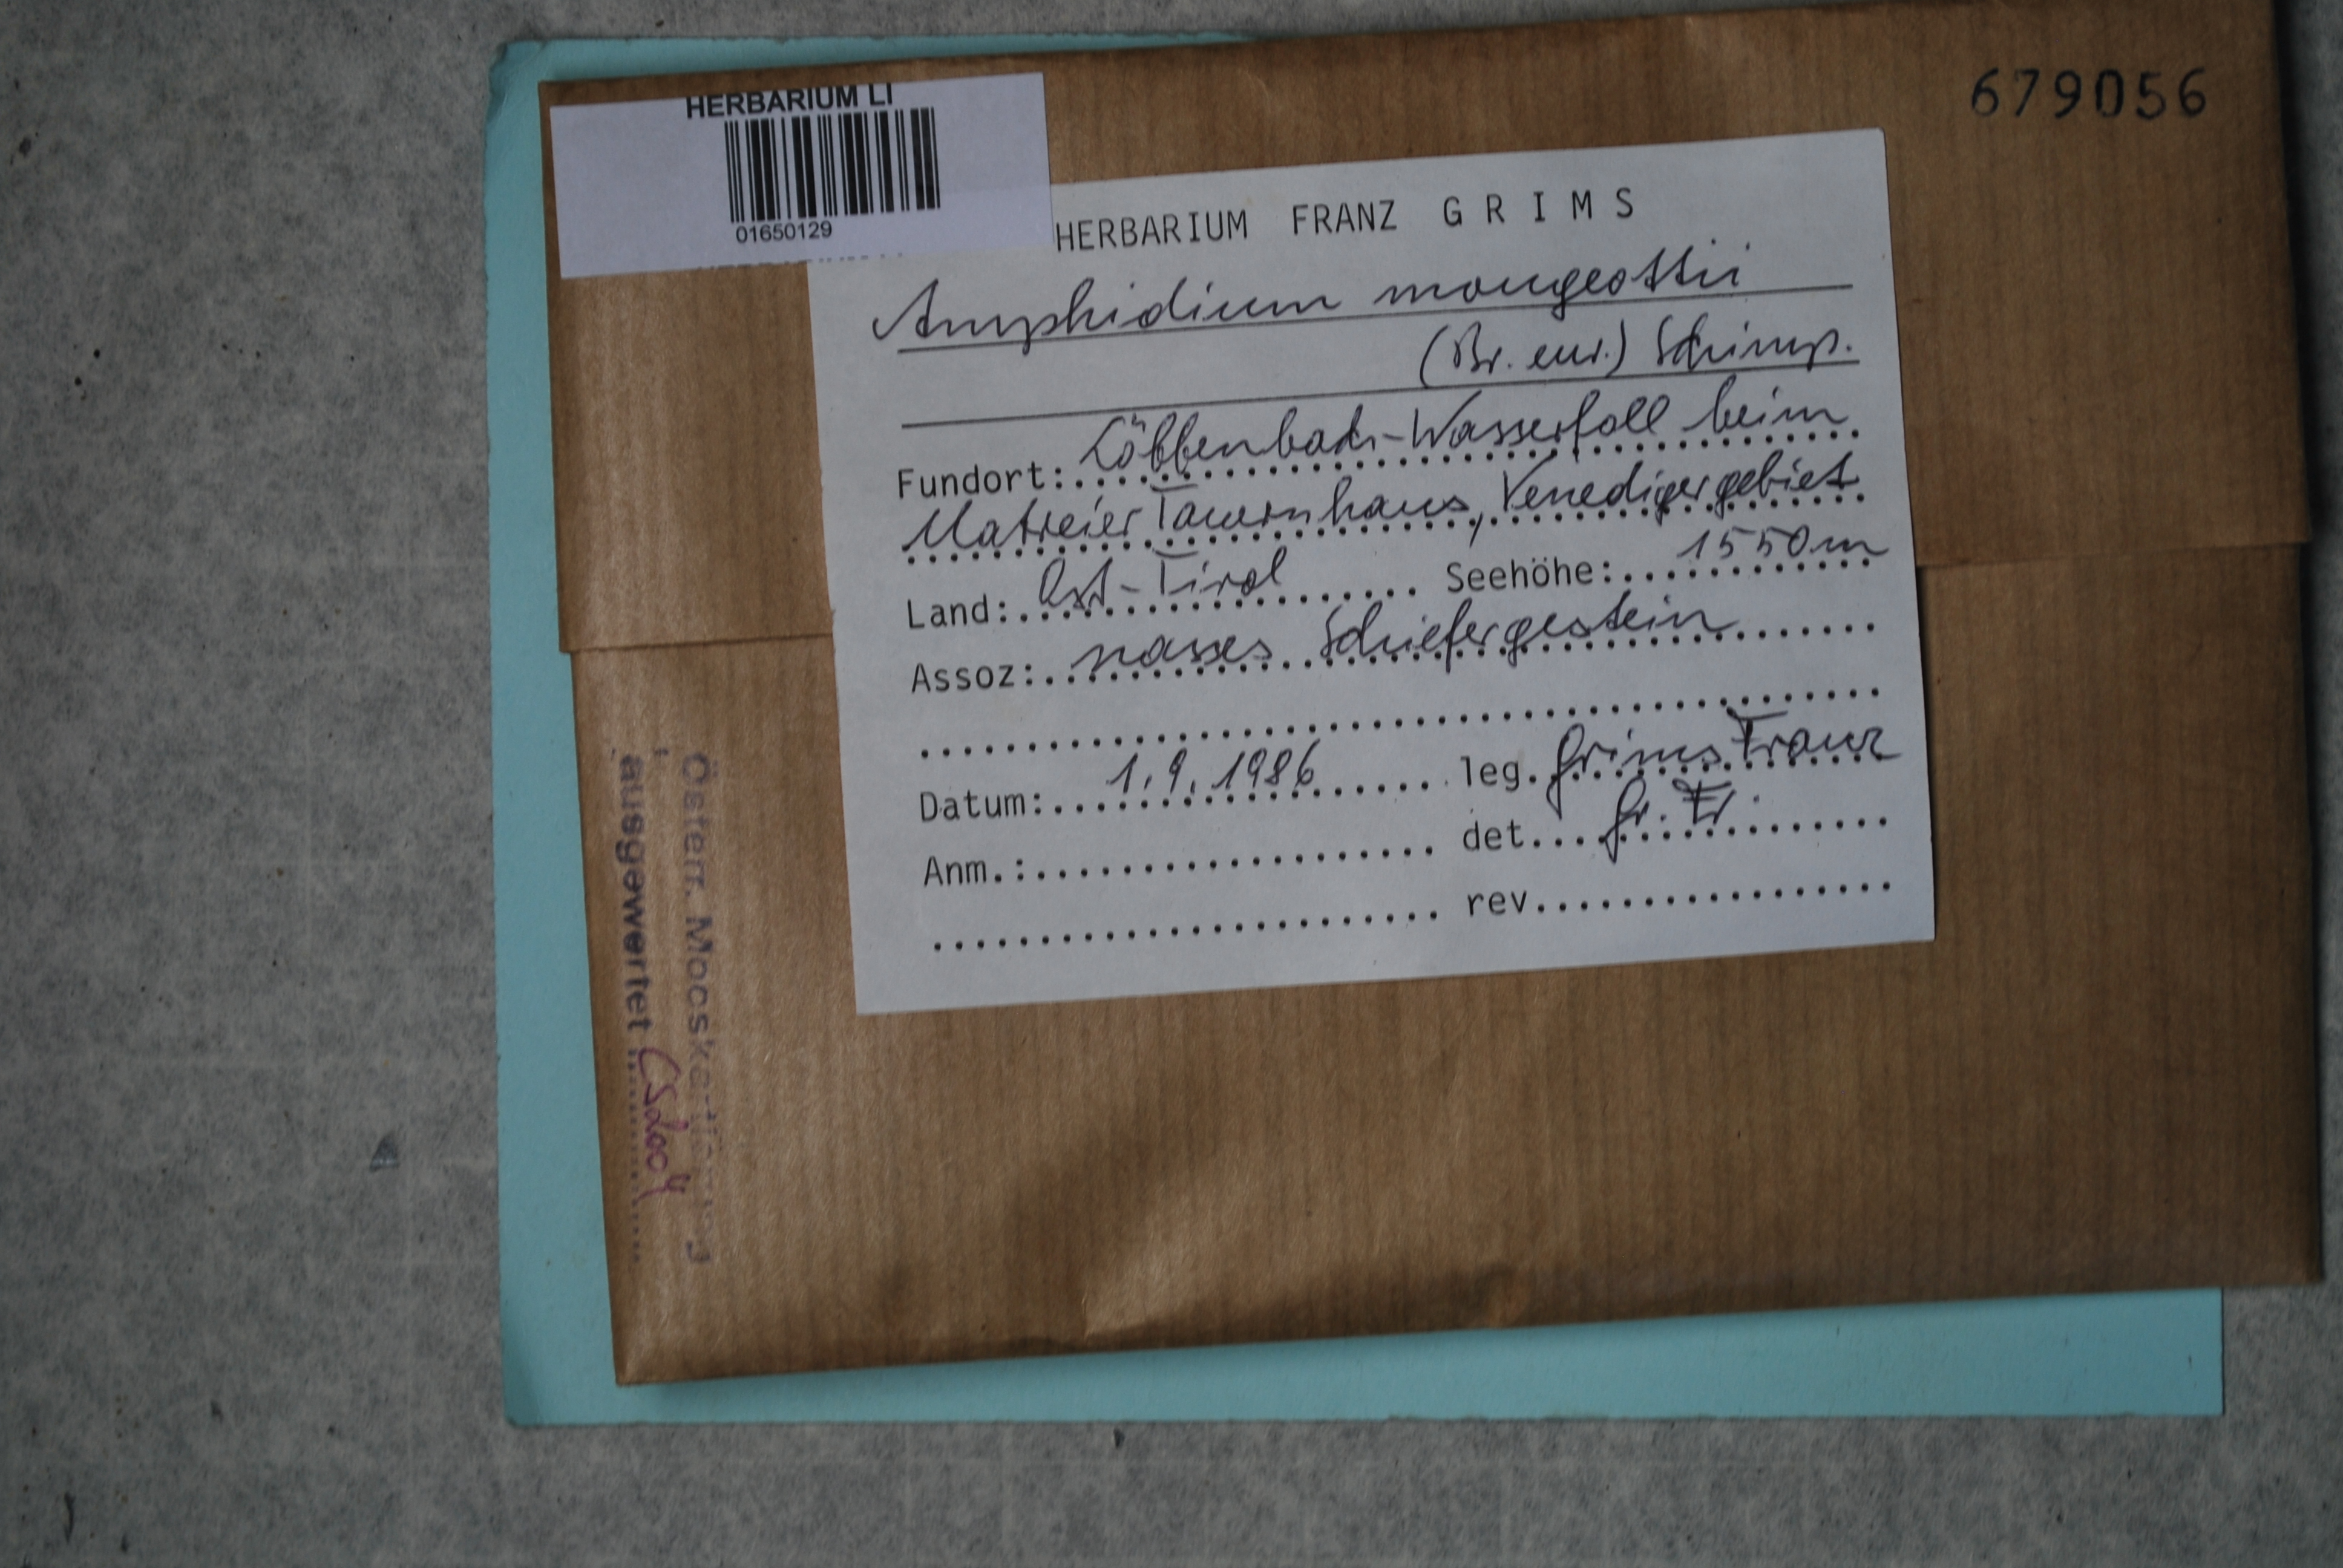 679056
HERBARIUM LI
01650129
HERBARIUM FRANZ GRIMS
Amphidium mougeottii
(Br. eur.) Schimp.
Fundort: Löbbenbach-Wasserfall beim
Matreier Tauernhaus, Venedigergebiet
Land: Ost-Tirol Seehöhe: 1550m
Assoz: nasses Schiefergestein
Datum: 1.9.1986 leg. Grims Franz
Anm.: det. Gr. Fr.
rev.
Österr. Mooskartierung
ausgewertet CS2004